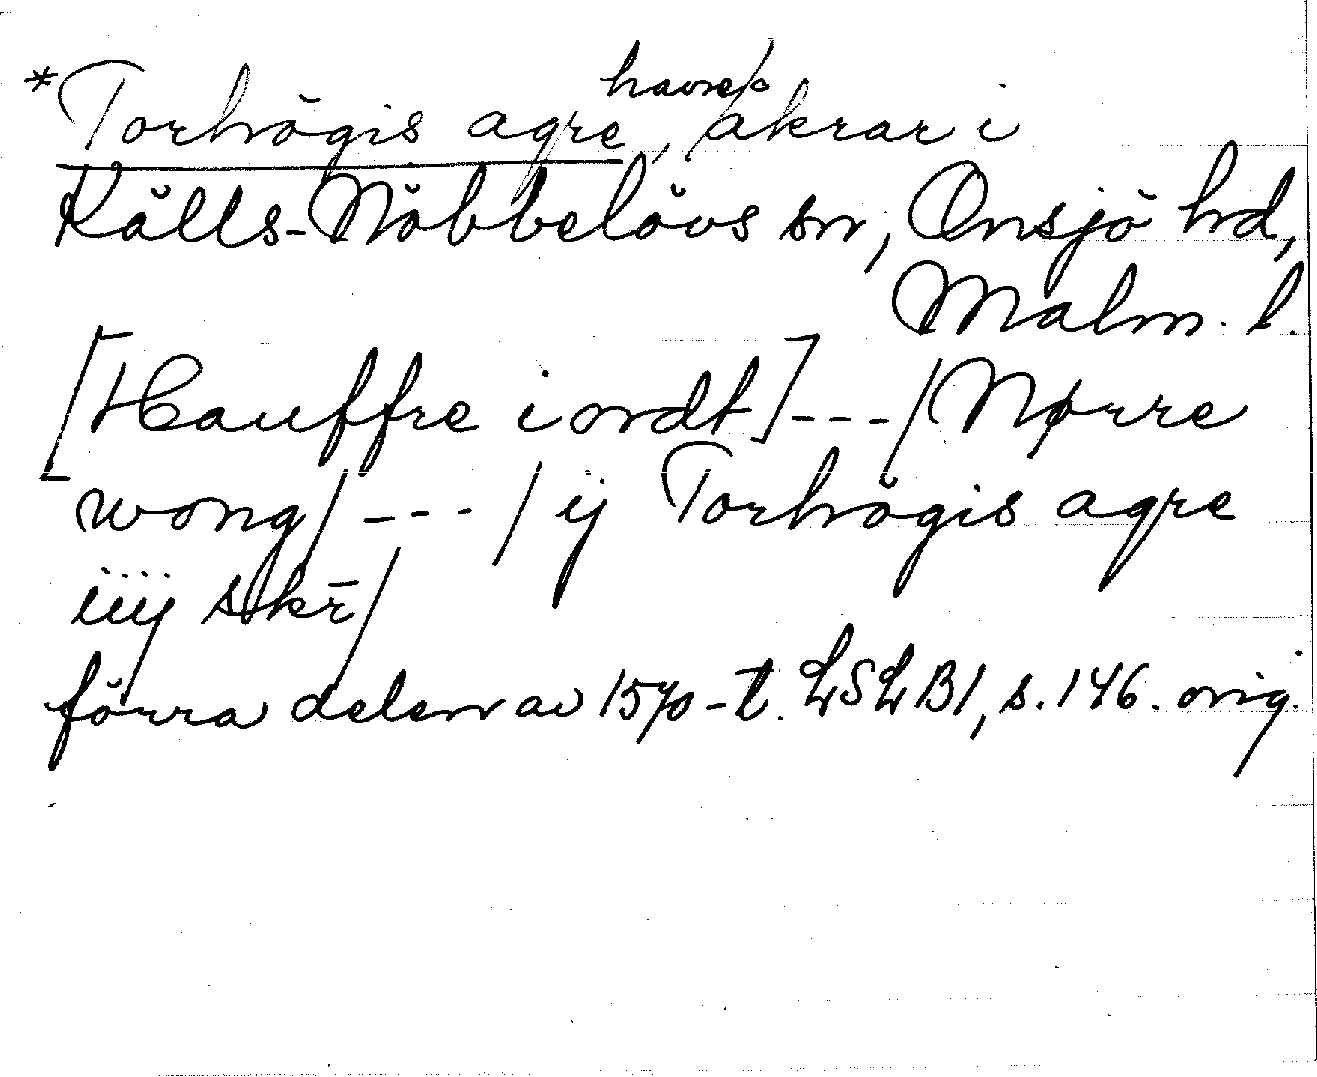 *Torhögis agre, havreåkrar i
Källs-Nöbbelövs sn, Onsjö hd,
Malm. l.
[Hauffre iordt]---/Nørre
wong/---/ij Torhögis agre
iiij skr̄/
förra delen av 1570-t. LSLB1, s. 146. orig.